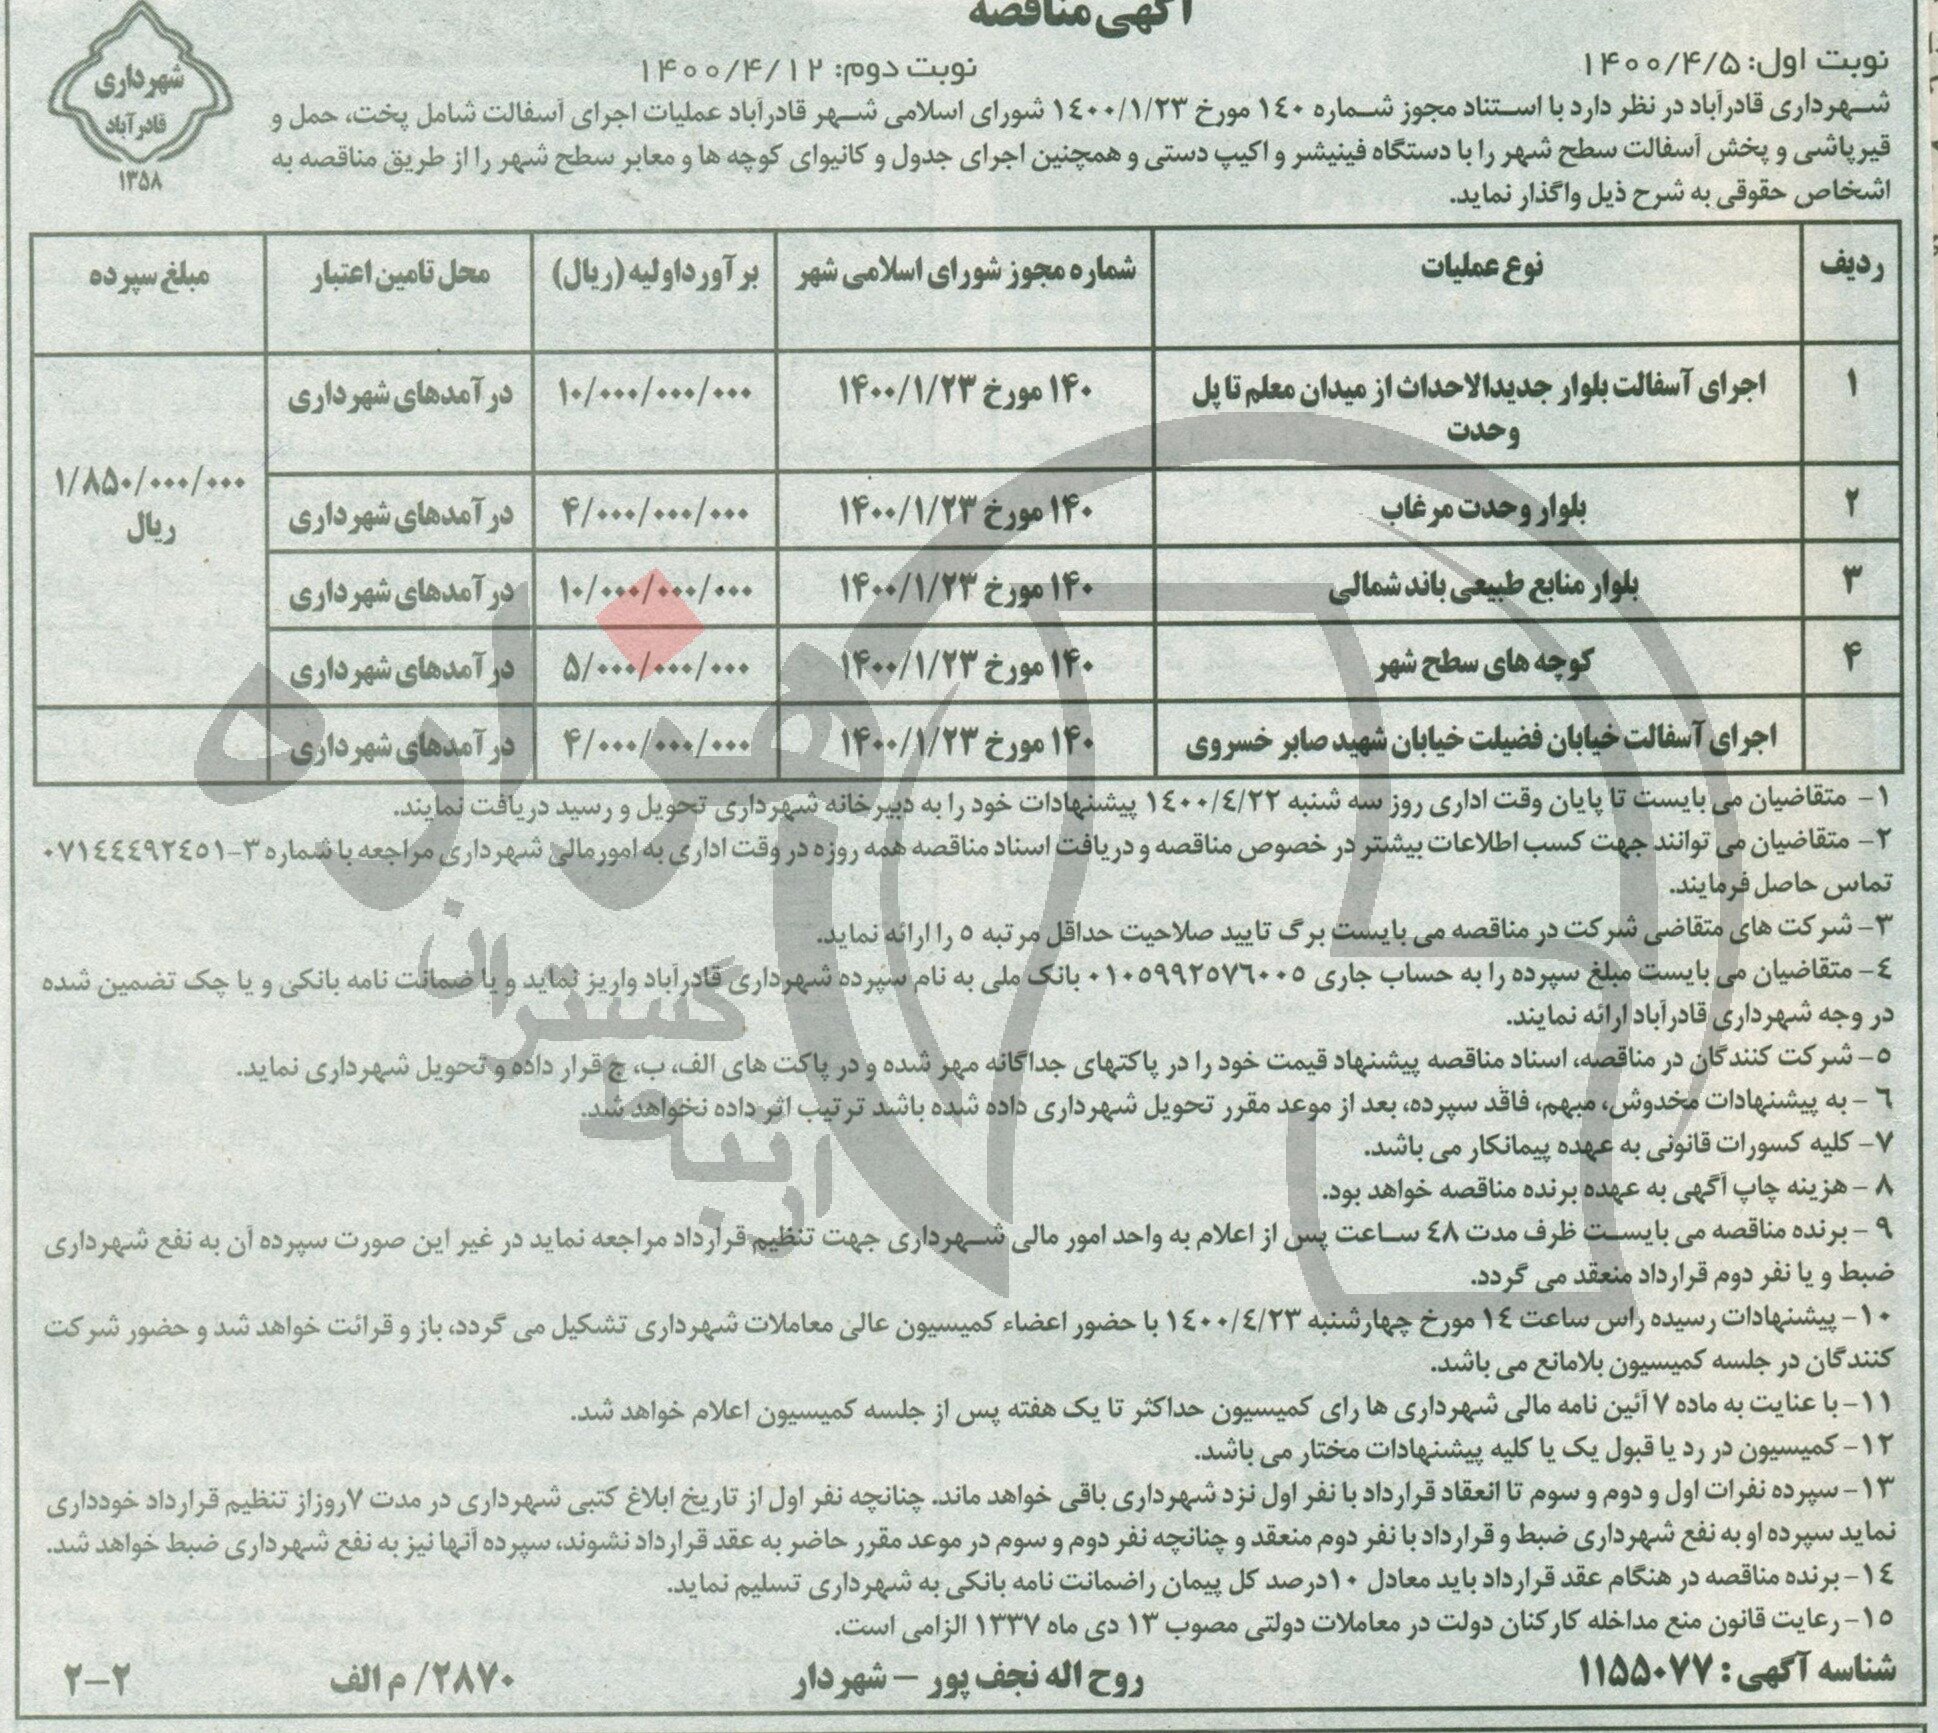 آگهی مناقصه
نوبت اول: ۱۴۰۰/۴/۵
نوبت دوم: ۱۴۰۰/۴/۱۲
شهرداری
قادرآباد
۱۳۵۸
شهرداری قادرآباد در نظر دارد با استناد مجوز شماره ۱۴۰ مورخ ۱۴۰۰/۱/۲۳ شورای اسلامی شهر قادرآباد عملیات اجرای آسفالت شامل پخت، حمل و
قیرپاشی و پخش آسفالت سطح شهر را با دستگاه فینیشر و اکیپ دستی و همچنین اجرای جدول و کانیوای کوچه ها و معابر سطح شهر را از طریق مناقصه به
اشخاص حقوقی به شرح ذیل واگذار نماید.
ردیف نوع عملیات شماره مجوز شورای اسلامی شهر برآورداولیه (ریال) محل تامین اعتبار مبلغ سپرده
۱ اجرای آسفالت بلوار جدیدالاحداث از میدان معلم تا پل ۱۴۰ مورخ ۱۴۰۰/۱/۲۳ ۱۰/۰۰۰/۰۰۰/۰۰۰ درآمدهای شهرداری
وحدت
۱/۸۵۰/۰۰۰/۰۰۰
ریال
۲ بلوار وحدت مرغاب ۱۴۰ مورخ ۱۴۰۰/۱/۲۳ ۴/۰۰۰/۰۰۰/۰۰۰ درآمدهای شهرداری
۳ بلوار منابع طبیعی باند شمالی ۱۴۰ مورخ ۱۴۰۰/۱/۲۳ ۱۰/۰۰۰/۰۰۰/۰۰۰ درآمدهای شهرداری
۴ کوچه های سطح شهر ۱۴۰ مورخ ۱۴۰۰/۱/۲۳ ۵/۰۰۰/۰۰۰/۰۰۰ درآمدهای شهرداری
اجرای آسفالت خیابان فضیلت خیابان شهید صابر خسروی ۱۴۰ مورخ ۱۴۰۰/۱/۲۳ ۴/۰۰۰/۰۰۰/۰۰۰ درآمدهای شهرداری
۱- متقاضیان می بایست تا پایان وقت اداری روز سه شنبه ۱۴۰۰/۴/۲۲ پیشنهادات خود را به دبیرخانه شهرداری تحویل و رسید دریافت نمایند.
۲- متقاضیان می توانند جهت کسب اطلاعات بیشتر در خصوص مناقصه و دریافت اسناد مناقصه همه روزه در وقت اداری به امورمالی شهرداری مراجعه با شماره ۳-۰۷۱۴۴۴۹۲۴۵۱
تماس حاصل فرمایند.
۳- شرکت های متقاضی شرکت در مناقصه می بایست برگ تایید صلاحیت حداقل مرتبه ۵ را ارائه نماید.
۴- متقاضیان می بایست مبلغ سپرده را به حساب جاری ۰۱۰۵۹۹۲۵۷۶۰۰۵ بانک ملی به نام سپرده شهرداری قادرآباد واریز نماید و یا ضمانت نامه بانکی و یا چک تضمین شده
در وجه شهرداری قادرآباد ارائه نمایند.
۵- شرکت کنندگان در مناقصه، اسناد مناقصه پیشنهاد قیمت خود را در پاکتهای جداگانه مهر شده و در پاکت های الف، ب، ج قرار داده و تحویل شهرداری نماید.
۶- به پیشنهادات مخدوش، مبهم، فاقد سپرده، بعد از موعد مقرر تحویل شهرداری داده شده باشد ترتیب اثر داده نخواهد شد.
۷- کلیه کسورات قانونی به عهده پیمانکار می باشد.
۸- هزینه چاپ آگهی به عهده برنده مناقصه خواهد بود.
۹- برنده مناقصه می بایست ظرف مدت ۴۸ ساعت پس از اعلام به واحد امور مالی شهرداری جهت تنظیم قرارداد مراجعه نماید در غیر این صورت سپرده آن به نفع شهرداری
ضبط و یا نفر دوم قرارداد منعقد می گردد.
۱۰- پیشنهادات رسیده راس ساعت ۱۴ مورخ چهارشنبه ۱۴۰۰/۴/۲۳ با حضور اعضاء کمیسیون عالی معاملات شهرداری تشکیل می گردد، باز و قرائت خواهد شد و حضور شرکت
کنندگان در جلسه کمیسیون بلامانع می باشد.
۱۱- با عنایت به ماده ۷ آئین نامه مالی شهرداری ها رای کمیسیون حداکثر تا یک هفته پس از جلسه کمیسیون اعلام خواهد شد.
۱۲- کمیسیون در رد یا قبول یک یا کلیه پیشنهادات مختار می باشد.
۱۳- سپرده نفرات اول و دوم و سوم تا انعقاد قرارداد با نفر اول نزد شهرداری باقی خواهد ماند. چنانچه نفر اول از تاریخ ابلاغ کتبی شهرداری در مدت ۷روزاز تنظیم قرارداد خودداری
نماید سپرده او به نفع شهرداری ضبط و قرارداد با نفر دوم منعقد و چنانچه نفر دوم و سوم در موعد مقرر حاضر به عقد قرارداد نشوند، سپرده آنها نیز به نفع شهرداری ضبط خواهد شد.
۱۴- برنده مناقصه در هنگام عقد قرارداد باید معادل ۱۰درصد کل پیمان راضمانت نامه بانکی به شهرداری تسلیم نماید.
۱۵- رعایت قانون منع مداخله کارکنان دولت در معاملات دولتی مصوب ۱۳ دی ماه ۱۳۳۷ الزامی است.
شناسه آگهی: ۱۱۵۵۰۷۷ روح اله نجف پور – شهردار ۲۸۷۰/ م الف ۲-۲
هزاره
گستران
ارتباط